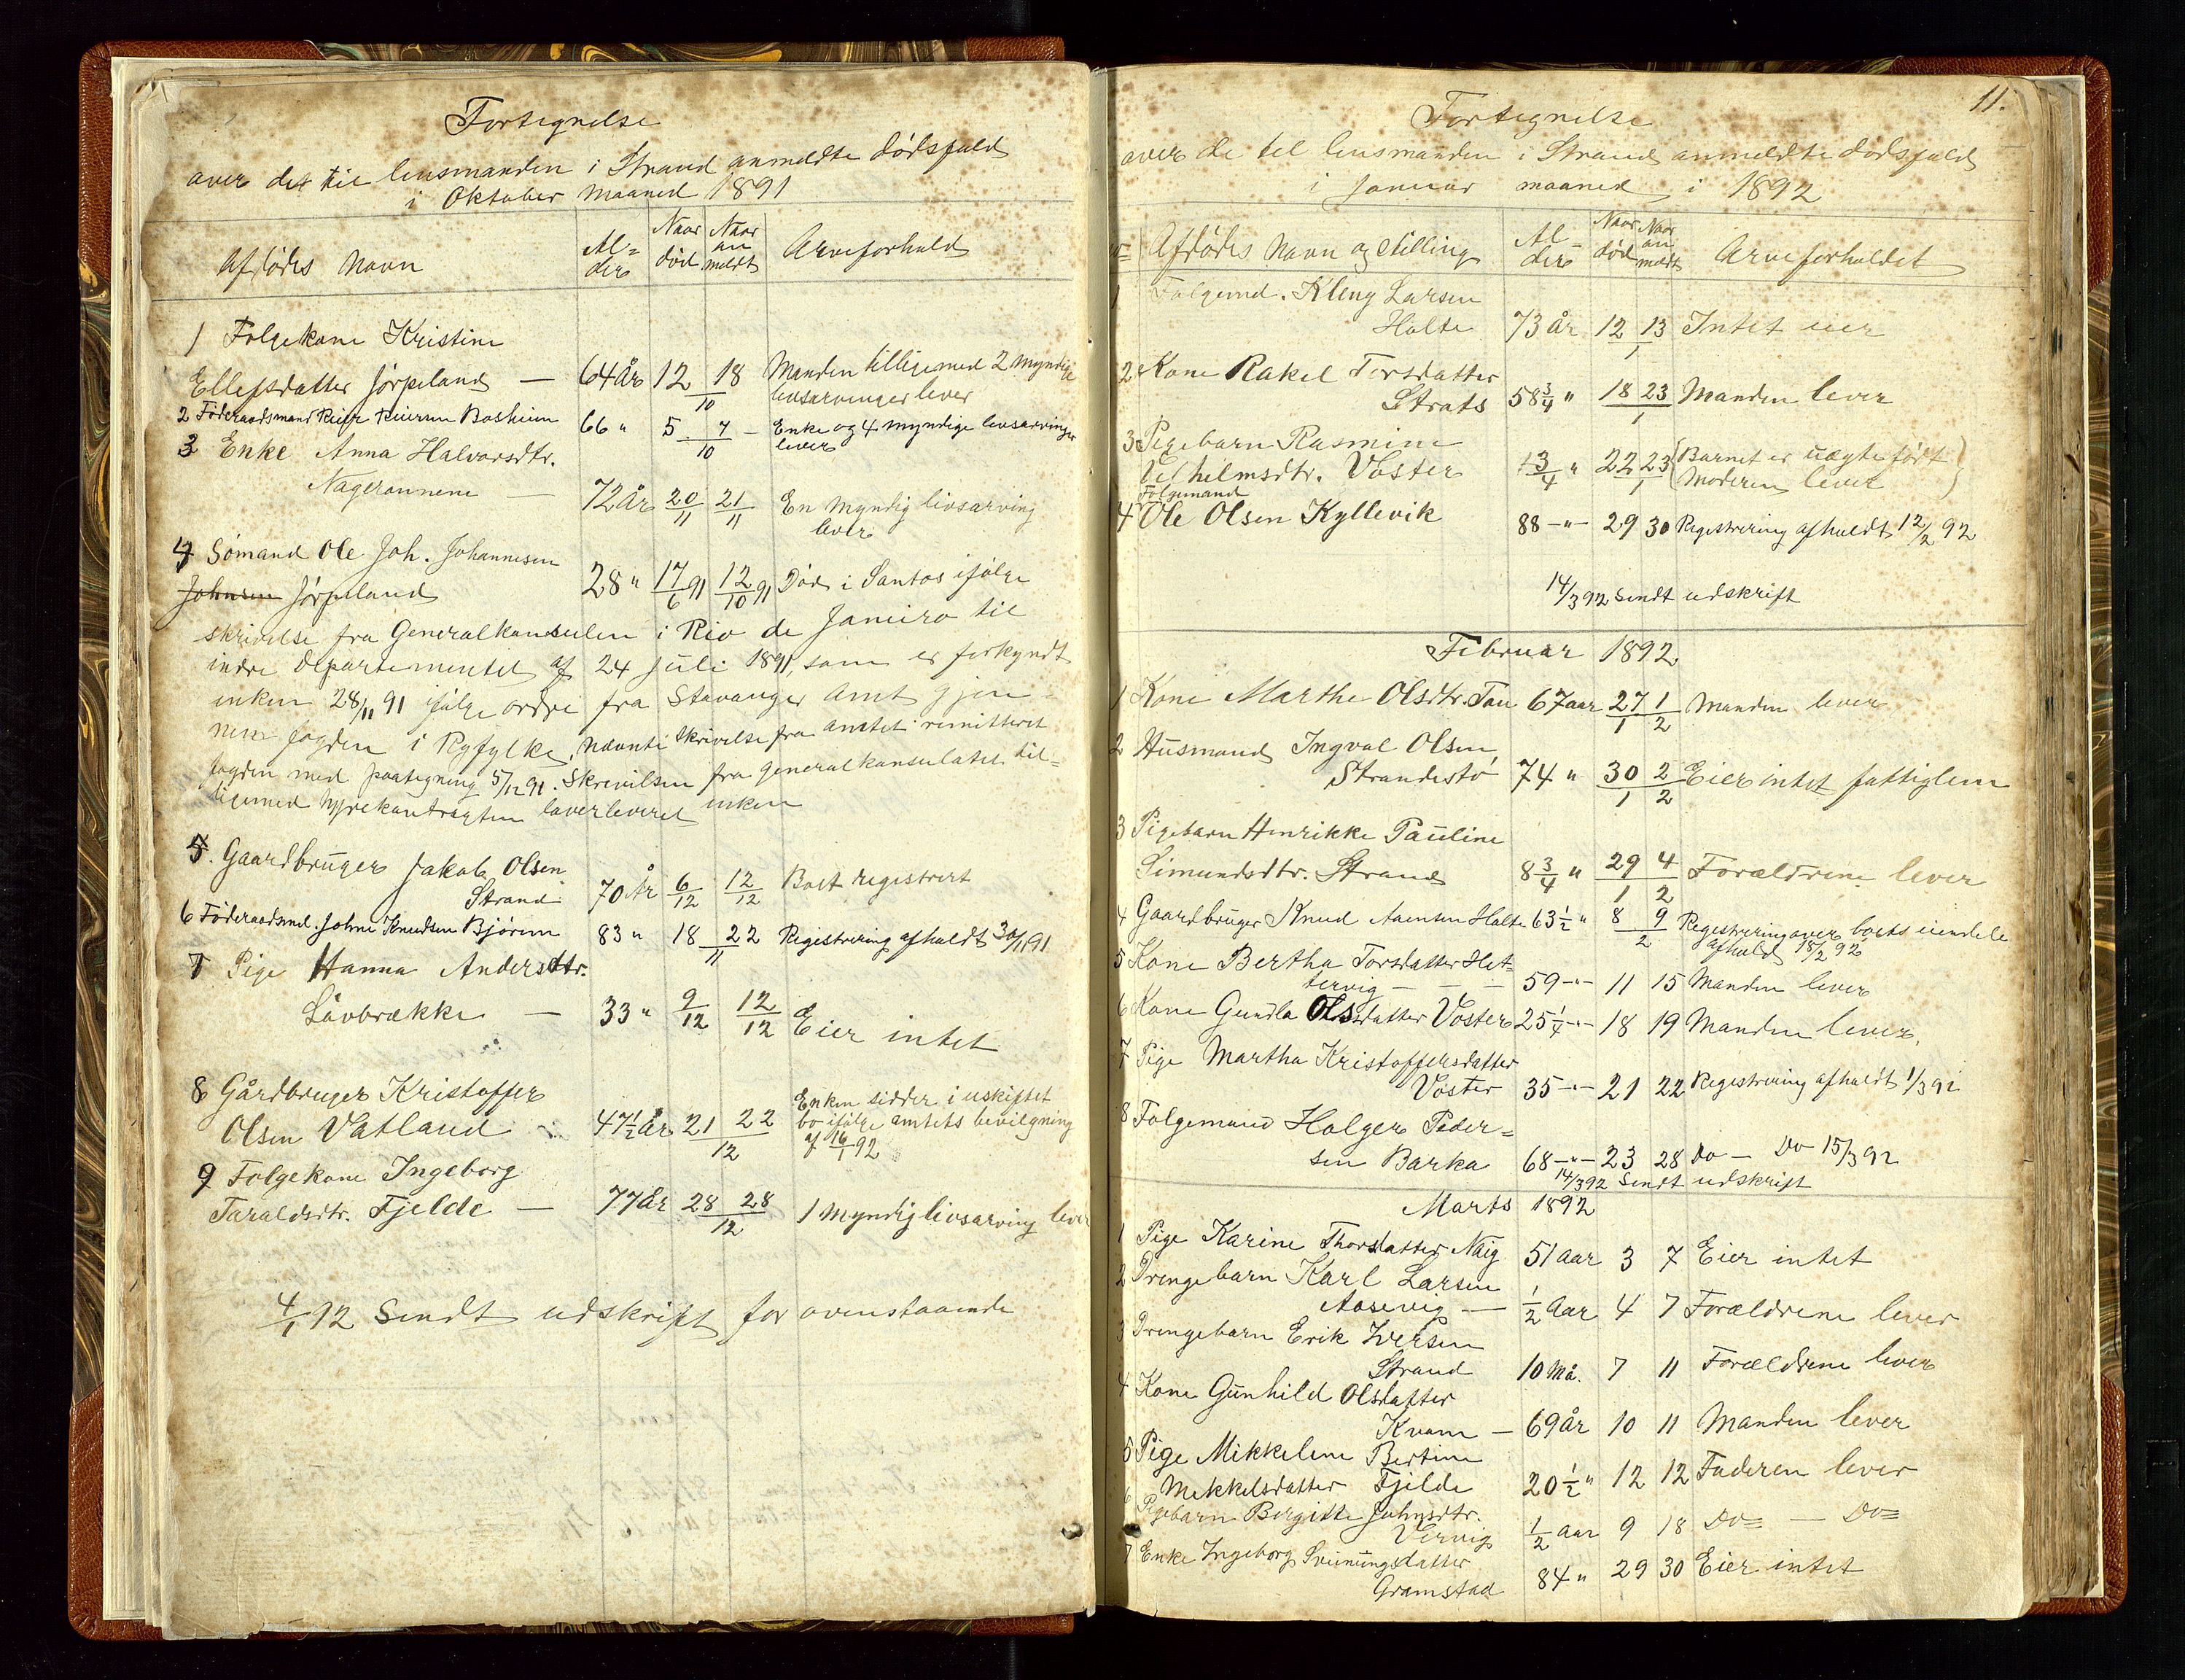 Fortegnelse
over det til lensmanden i Strand anmeldte dødsfald
i Oktober maaned 1891
Afdødes Navn
Al-
der
Naar
død
Naar
an
meldt
Arveforhold
1 Folgekone Kristine
Ellefsdatter Jørpeland — 64 År 12 18/10 Manden tilligemed 2 myndige
livsarvinger lever
2 Føderaadsmand Bosheim 66 " 5 7/10 — Enke og 4 myndige livsarvinger
lever
3 Enke Anna Halvorsdtr.
Nageronnene — 72 År 20/11 21/11 En myndig livsarving
lever
4 Sømand Ole Joh. Johannesen
Johnsen Jørpeland 28 " 17/6 91 12/10 91 Død i Santos ifølge
skrivelse fra Generalkonsulen i Rio de Janeiro til
indre Departementet af 24 Juli 1891, som er forkyndt
enken 28/11 91 ifølge ordre fra Stavanger Amt gjen-
nem fogden i Ryfylke, nævnte skrivelse fra amtet remitteret
fogden med paategning 5/12 91. Skrivelsen fra generalkonsulatet til-
ligemed hyrekontragten enken
5. Gaardbruger Jakob Olsen
Strand 70 År 6/12 12/12 Boet registrert
6 Føderaadsmd. Johne Knudsen Bjørem 83 " 18 22/11 Registrering afholdt 30/11 91
7 Pige Hanna Andersdtr.
Løvbrække — 33 " 9/12 12/12 Eier intet
8 Gårdbruger Kristoffer
Olsen Vatland 47½ År 21 22/12 Enken sidder i uskiftet
bo ifølge amtets bevilgning
af 16/1 92
9 Folgekone Ingeborg
Taraldsdtr. Fjelde — 77 År 28 28/12 1 myndig livsarving lever
4/1 92 Sendt udskrift for ovenstaaende
11.
Fortegnelse
over de til lensmanden i Strand anmeldte dødsfald
i Januar maaned i 1892
Afdødes Navn og stilling
Al-
der
Naar
død
Naar
an
meldt
Arveforholdet
1 Folgemd. Kleng Larsen
Holte 73 år 12 13/1 Intet eier
2 Kone Rakel Torsdatter
Strats 58¾ " 18 23/1 Manden lever
3 Pigebarn Rasmine
Velhelmsdtr. Voster 1¾ " 22 23/1 Barnet er uægte født
Moderen lever
Folgemand
4 Ole Olsen Kyllevik 88 -"- 29 30 Registrering afholdt 12/2 92
14/3 92 Sendt udskrift
Februar 1892
1 Kone Marthe Olsdtr. Tau 67 aar 27/1 1/2 Manden lever
2 Husmand Ingval Olsen
Strandestø 74 " 30/1 2/2 Eier intet fattiglem
3 Pigebarn Henrikke Pauline
Simundsdtr. Strand 8¾ " 29/1 4/2 Forældrene lever
4 Gaardbruger Knud Aamsen Holte 63½ " 8 9/2 Registrering over boets eiendele
afholdt 18/2 92
5 Kone Bertha Torsdatter Het-
tervig — — — 59 -"- 11 15 Manden lever
6 Kone Gundla Olsdatter Voster 25¼ -"- 18 19 Manden lever.
7 Pige Martha Kristoffersdatter
Voster 35 -"- 21 22 Registrering afholdt 1/3 92
8 Folgemand Holger Peder-
sen Barka 68 -"- 23 28 Do — Do 15/3 92
14/3 92 Sendt udskrift
Marts 1892
1 Pige Karine Thorsdatter Någ 51 aar 3 7 Eier intet
2 Drengebarn Karl Larsen
Aasevig — ½ Aar 4 7 Forældrene lever
3 Drengebarn Erik Iversen
Strand 10 Må. 7 11 Forældrene lever
4 Kone Gunhild Olsdatter
Kvam — 69 år 10 11 Manden lever
5 Pige Mikkeline Bertine
Mekkelsdatter Fjelde 20½ " 12 12 Faderen lever
6 Pigebarn Birgitte Johnsdtr.
Vervig ½ aar 9 18 Do — Do
7 Enke Ingeborg Sveinungsdatter
Gramstad 84 " 29 30 Eier intet